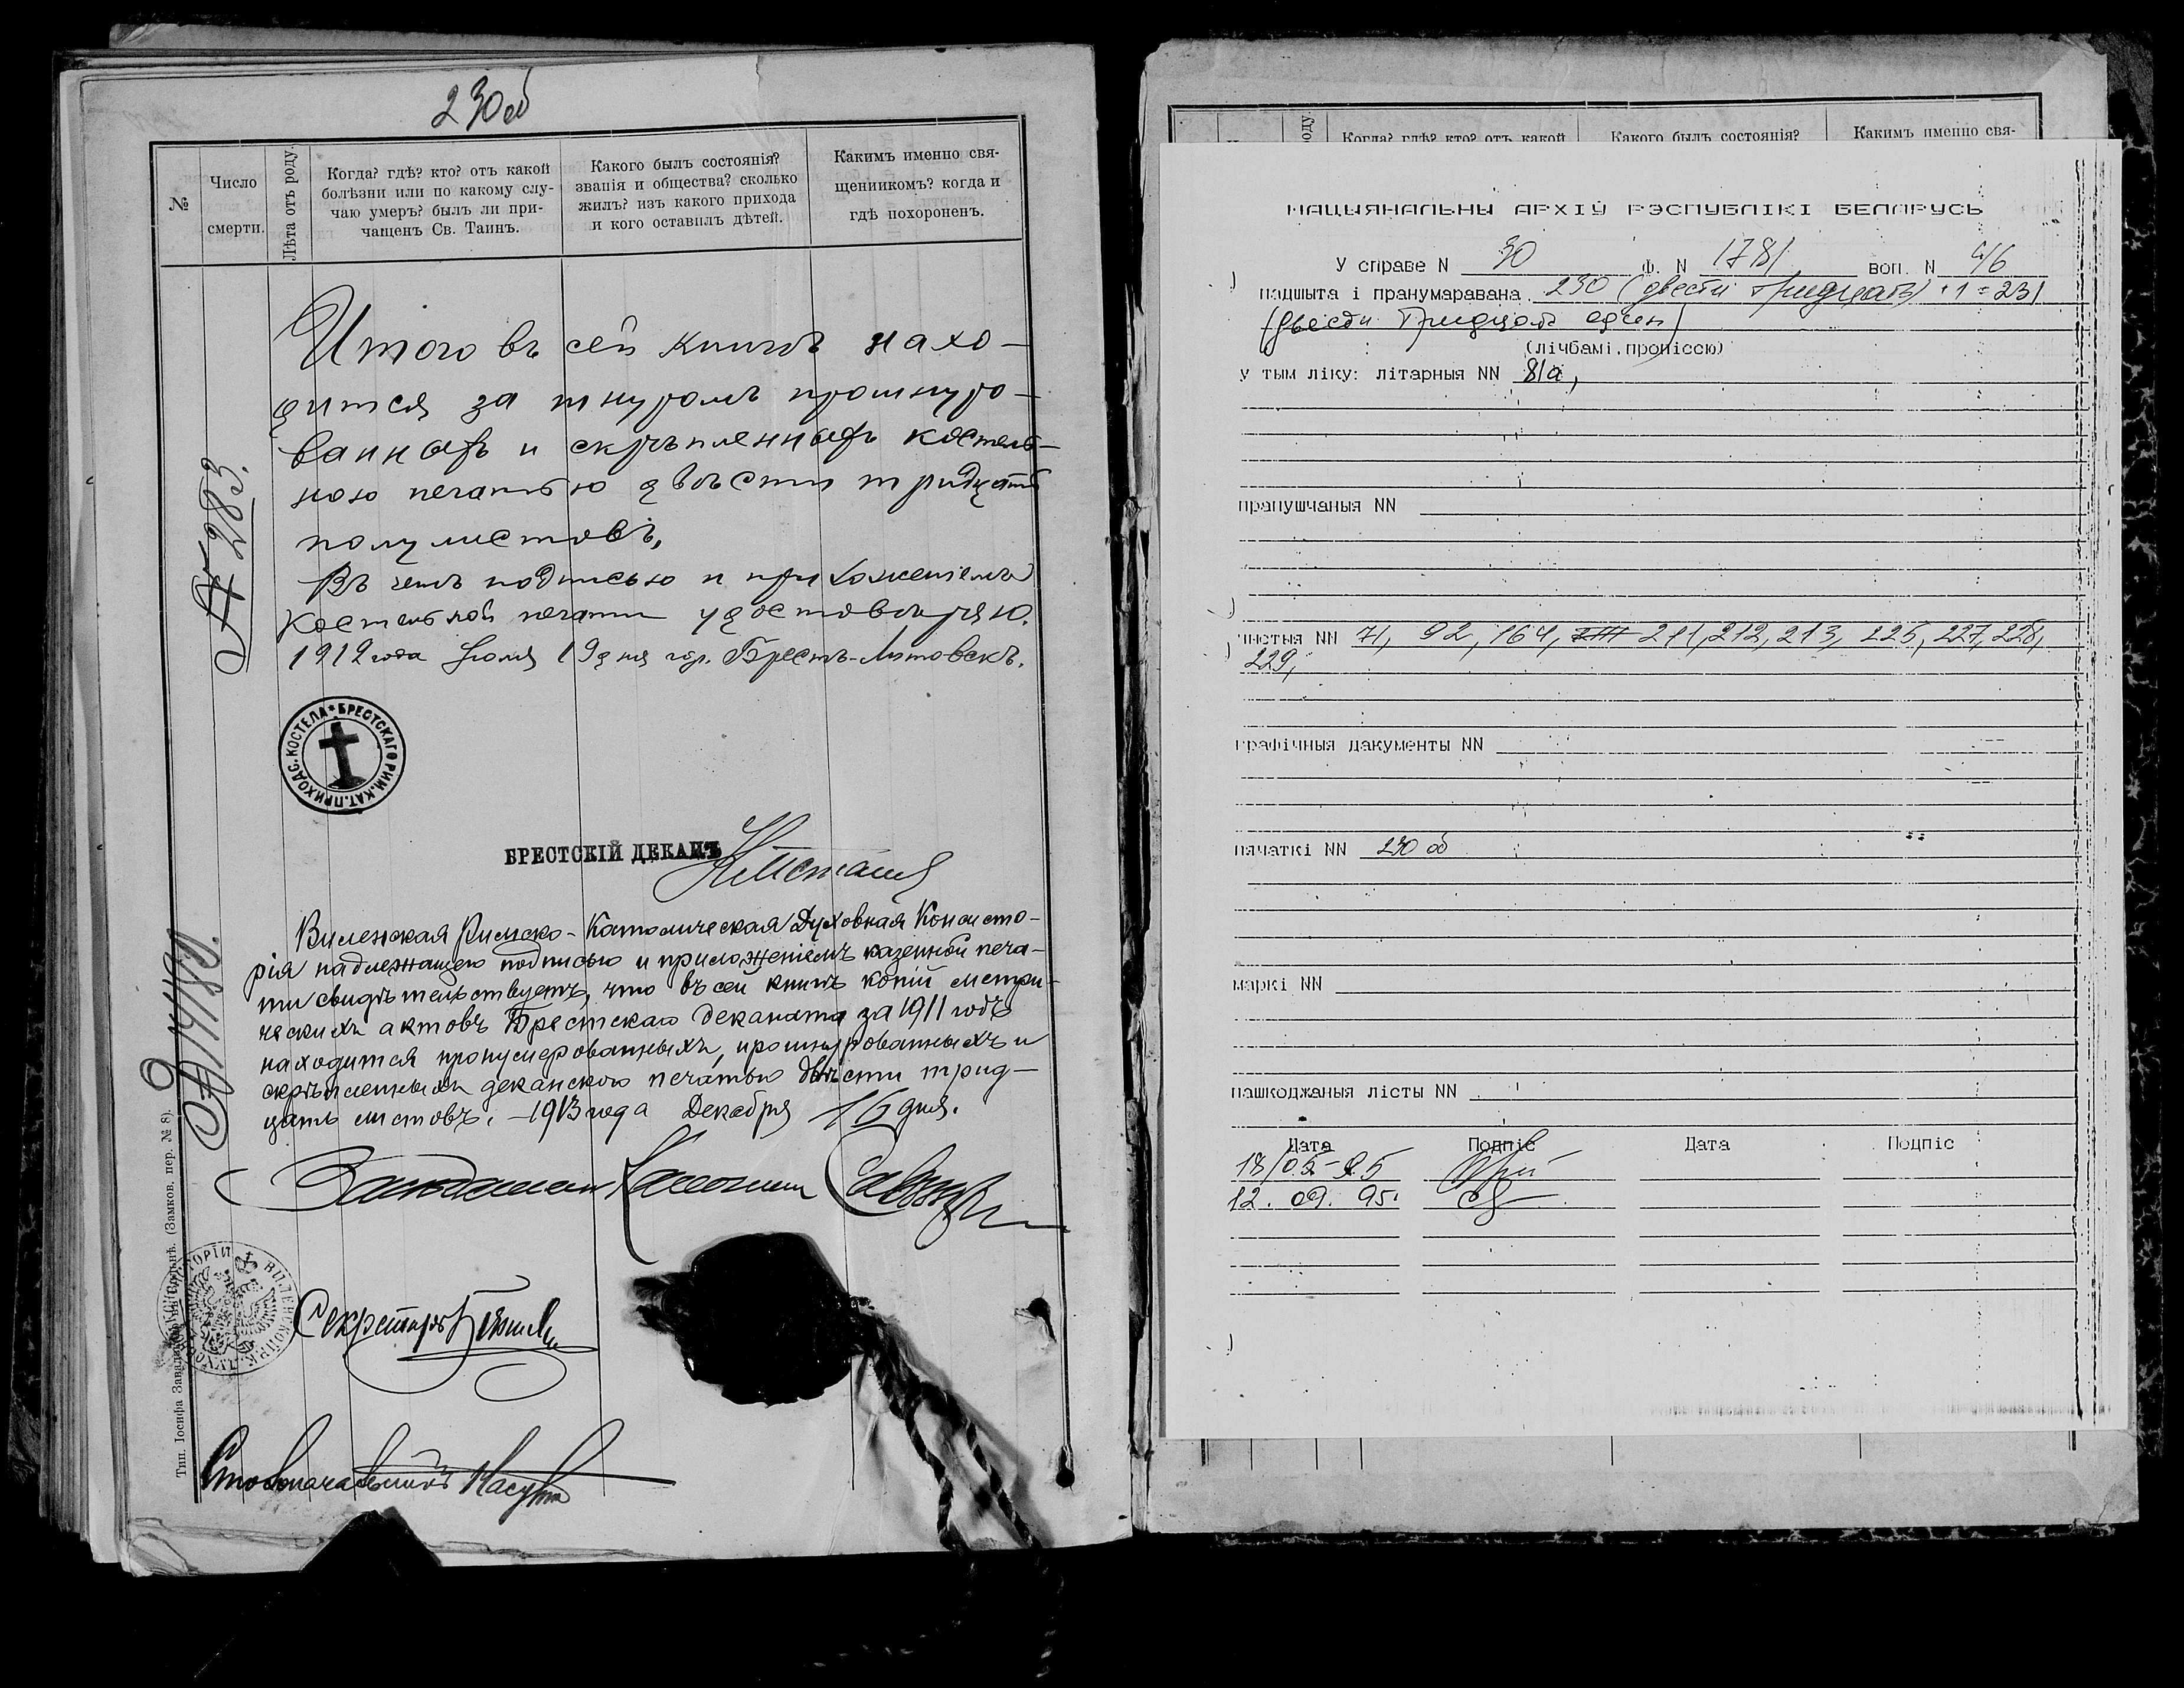 230 об
№
Число
смерти.
Лѣта отъ роду.
Когда? гдѣ? кто? отъ какой
болѣзни или по какому слу-
чаю умеръ? былъ ли при-
чащенъ Св. Таинъ.
Какого былъ состоянія?
званія и общества? сколько
жилъ? изъ какого прихода
и кого оставилъ дѣтей.
Какимъ именно свя-
щенникомъ? когда и
гдѣ похороненъ.
Итого въ сей книгѣ нахо-
дится за шнуромъ прошнуро-
ванныхъ и скрѣпленныхъ костель-
ною печатью двѣсти тридцать
полулистовъ,
Въ чемъ подписью и приложеніемъ
костельной печати удостовѣряю.
1912 года Іюля 19 дня гор. Брестъ-Литовскъ.
283.
БРЕСТСКАГО РИМ. КАТ. ПРИХОДС. КОСТЕЛА
БРЕСТСКІЙ ДЕКАНЪ
Виленская Римско-Католическая Духовная Консисто-
рія надлежащею подписью и приложеніемъ казенной печа-
ти свидѣтельствуетъ, что въ сей книгѣ копій метри-
ческихъ актовъ Брестскаго деканата за 1911 годъ
находится пронумерованныхъ, прошнурованныхъ и
скрѣпленныхъ деканскою печатью двѣсти трид-
цать листовъ. - 1913 года Декабря 16 дня.
Секретарь
Столоначальникъ
Тип. Іосифа Завадзкаго въ Вильнѣ. (Замков. пер. № 8).
Когда? гдѣ? кто? отъ какой
Какого былъ состоянія?
Какимъ именно свя-
НАЦЫЯНАЛЬНЫ АРХІЎ РЭСПУБЛІКІ БЕЛАРУСЬ
У справе N 30 Ф. N 1781 воп. N
падшыта і пранумаравана 230 (двести тридцать) +1=231
(двести тридцать один)
(лічбамі, пропіссю)
у тым ліку: літарныя NN 81а,
прапушчаныя NN
чыстыя NN 71, 92, 164, 211, 212, 213, 226, 227, 228,
229,
графічныя дакументы NN
пячаткі NN 230 об
маркі NN
пашкоджаныя лісты NN
Дата Подпіс Дата Подпіс
18/05-95
12. 09. 95.